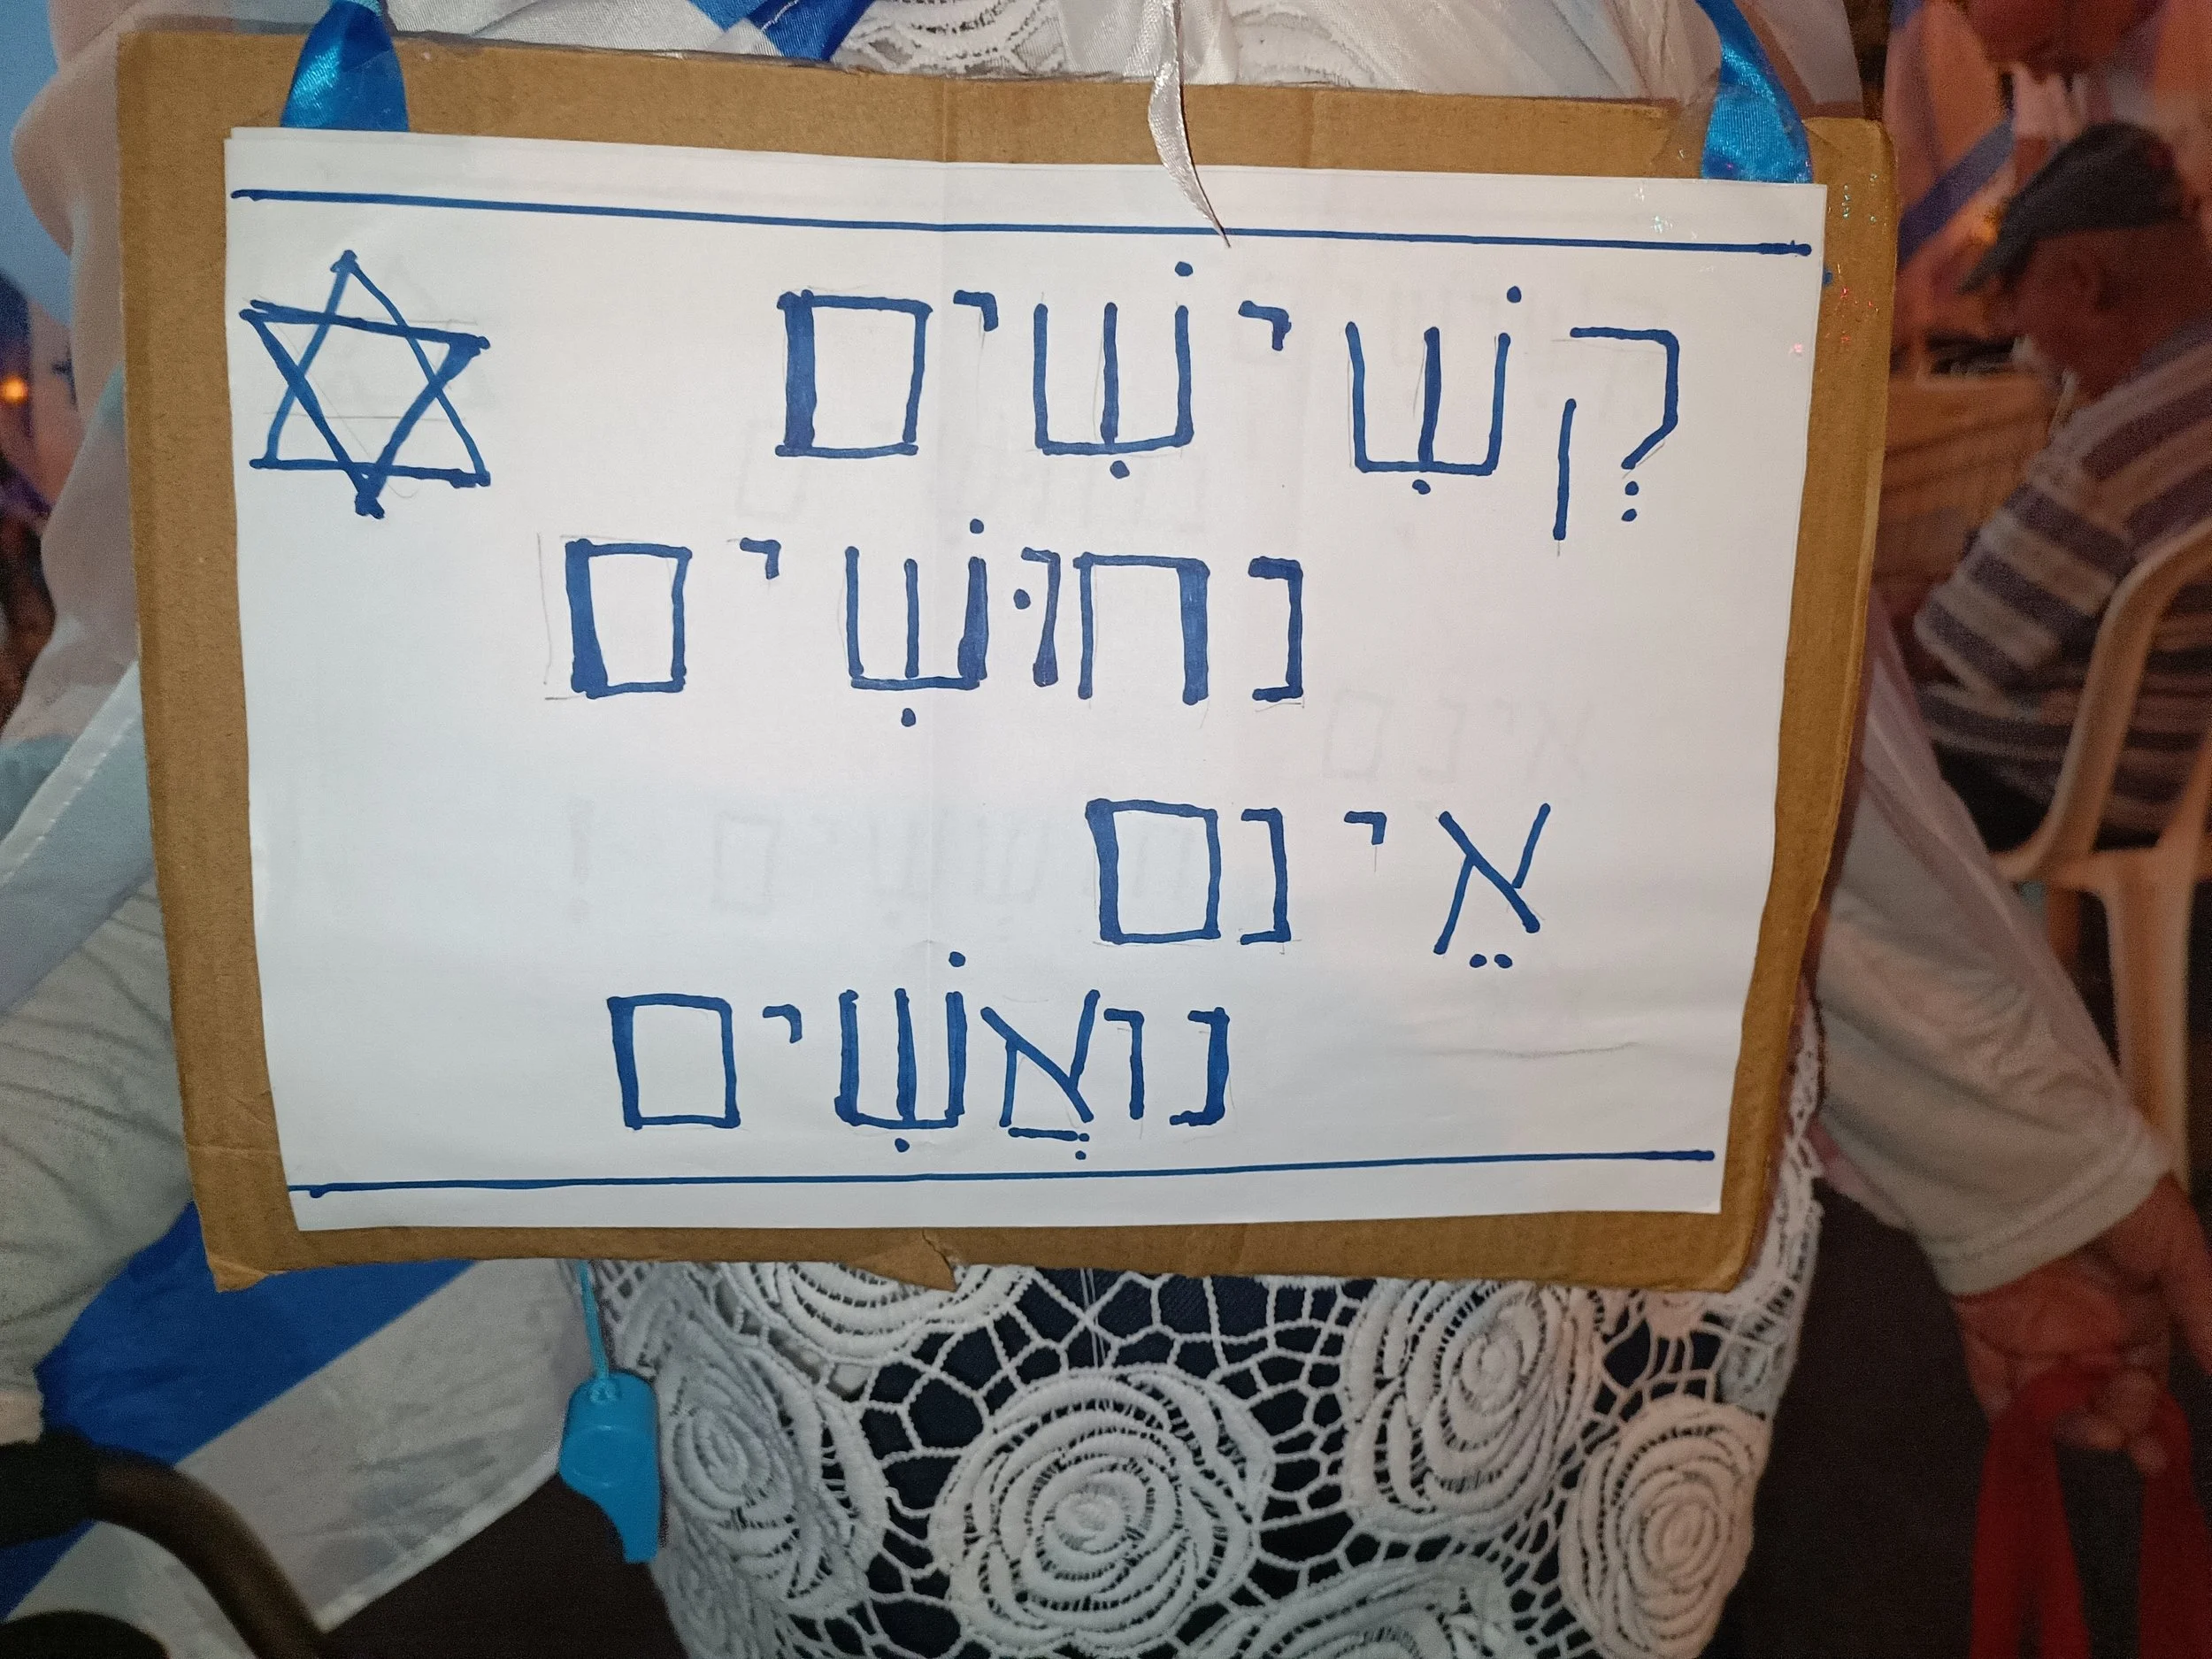 קְשִׁישִׁים
נחוּשִׁים
אֵינם
נואֲשִׁים